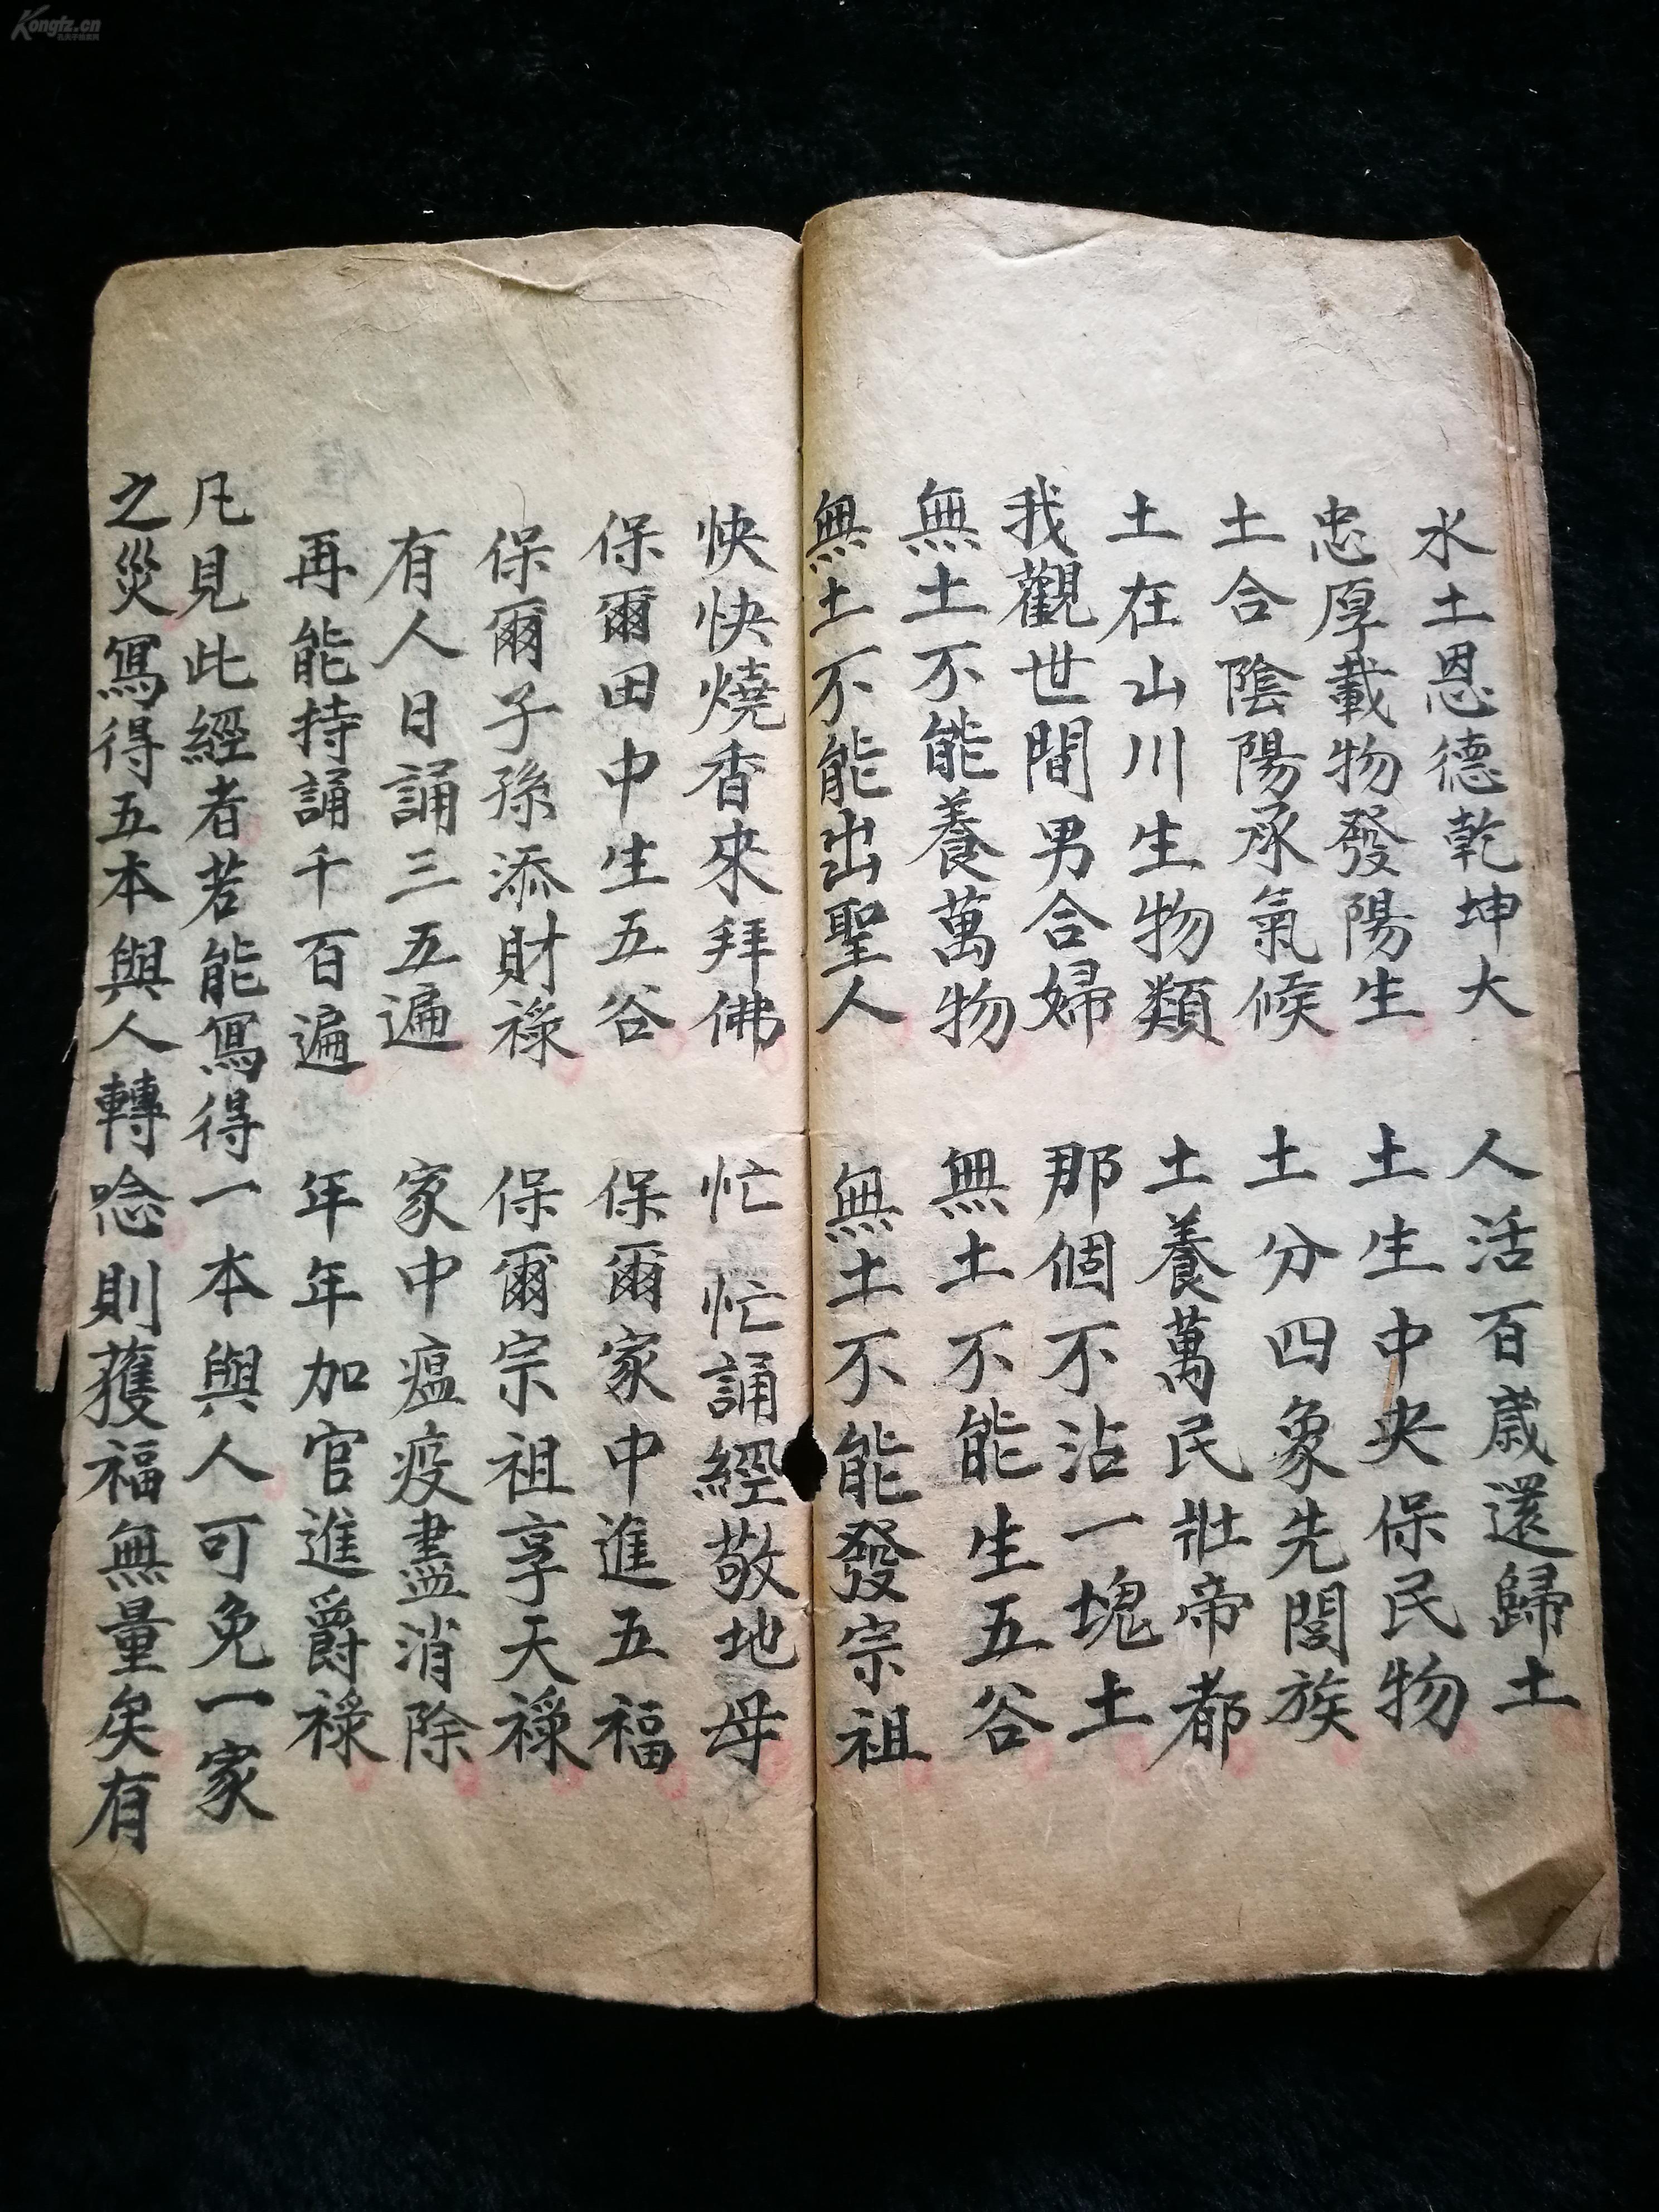 水土恩德乾坤大 人活百歲還歸土
忠厚載物發陽生 土生中央保民物
土合陰陽承氣候 土分四象先閭族
土在山川生物類 土養萬民壯帝都
我觀世間男合婦 那個不沾一塊土
無土不能養萬物 無土不能生五谷
無土不能出聖人 無土不能發宗祖
快快燒香來拜佛 忙忙誦經敬地母
保爾田中生五谷 保爾家中進五福
保爾子孫添財祿 保爾宗祖享天祿
有人日誦三五遍 家中瘟疫盡消除
再能持誦千百遍 年年加官進爵祿
凡見此經者若能寫得一本與人可免一家
之災寫得五本與人轉念則獲福無量矣有
Kongfz.cn